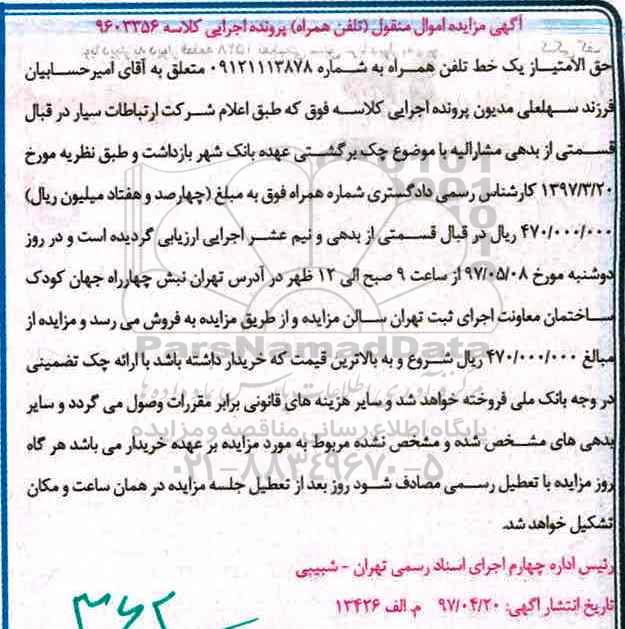 آگهی مزایده اموال منقول (تلفن همراه) پرونده اجرایی کلاسه ۹۶۰۳۳۵۶
حق الامتیاز یک خط تلفن همراه به شماره ۰۹۱۲۱۱۱۳۸۷۸ متعلق به آقای امیرحسابیان
فرزند سهلعلی مدیون پرونده اجرایی کلاسه فوق که طبق اعلام شرکت ارتباطات سیار در قبال
قسمتی از بدهی مشارالیه با موضوع چک برگشتی عهده بانک شهر بازداشت و طبق نظریه مورخ
۱۳۹۷/۳/۲۰ کارشناس رسمی دادگستری شماره همراه فوق به مبلغ (چهارصد و هفتاد میلیون ریال)
۴۷۰/۰۰۰/۰۰۰ ریال در قبال قسمتی از بدهی و نیم عشر اجرایی ارزیابی گردیده است و در روز
دوشنبه مورخ ۹۷/۰۵/۰۸ از ساعت ۹ صبح الی ۱۲ ظهر در آدرس تهران نبش چهارراه جهان کودک
ساختمان معاونت اجرای ثبت تهران سالن مزایده و از طریق مزایده به فروش می رسد و مزایده از
مبالغ ۴۷۰/۰۰۰/۰۰۰ ریال شروع و به بالاترین قیمت که خریدار داشته باشد با ارائه چک تضمینی
در وجه بانک ملی فروخته خواهد شد و سایر هزینه های قانونی برابر مقررات وصول می گردد و سایر
بدهی های مشخص شده و مشخص نشده مربوط به مورد مزایده بر عهده خریدار می باشد هر گاه
روز مزایده با تعطیل رسمی مصادف شود روز بعد از تعطیل جلسه مزایده در همان ساعت و مکان
تشکیل خواهد شد.
رئیس اداره چهارم اجرای اسناد رسمی تهران - شبیبی
تاریخ انتشار آگهی: ۹۷/۰۴/۲۰ م الف ۱۳۴۲۶
ParsNamadData
پایگاه اطلاع رسانی مناقصه و مزایده
۰۲۱-۸۸۳۴۹۶۷۰-۵